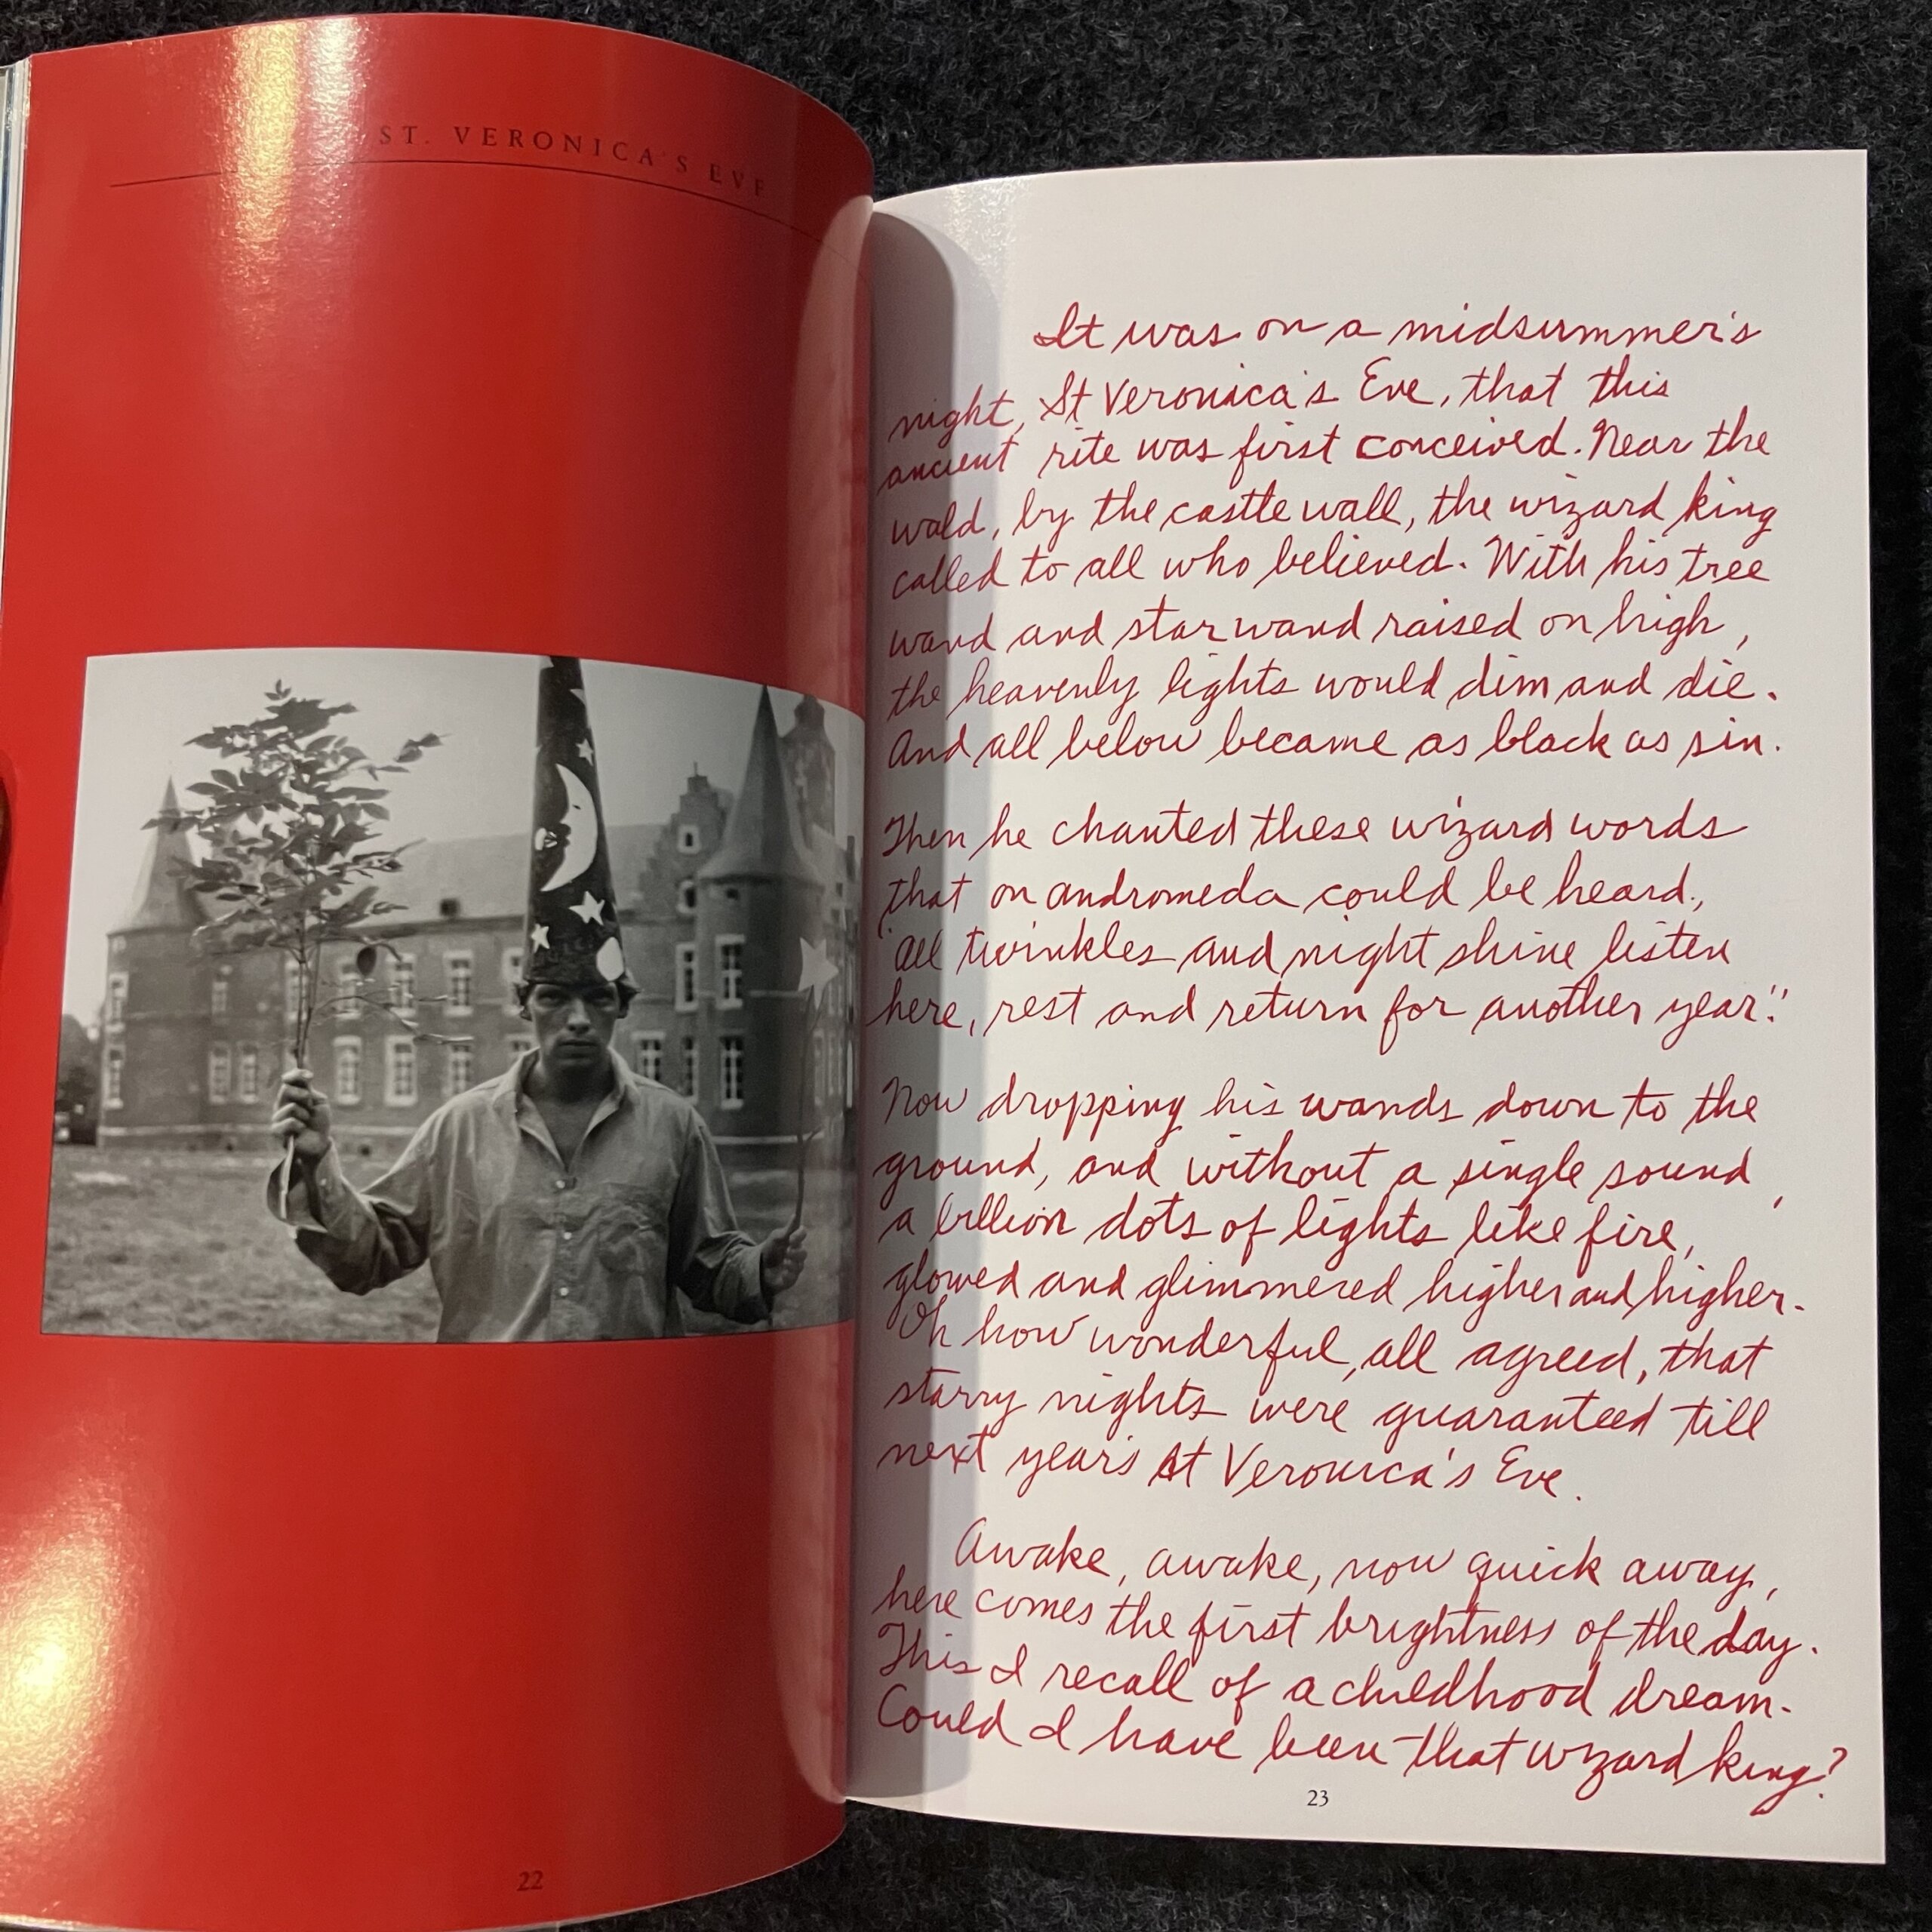 ST. VERONICA'S EVE
22
It was on a midsummer's
night, St Veronica's Eve, that this
ancient rite was first conceived. Near the
wald, by the castle wall, the wizard king
called to all who believed. With his tree
wand and star wand raised on high,
the heavenly lights would dim and die.
And all below became as black as sin.
Then he chanted these wizard words
that on andromeda could be heard,
"all twinkles and night shine listen
here, rest and return for another year."
Now dropping his wands down to the
ground, and without a single sound,
a billion dots of lights like fire,
glowed and glimmered higher and higher.
Oh how wonderful, all agreed, that
starry nights were guaranteed till
next year's St Veronica's Eve.
Awake, awake, now quick away,
here comes the first brightness of the day.
This I recall of a childhood dream.
Could I have been that wizard king?
23